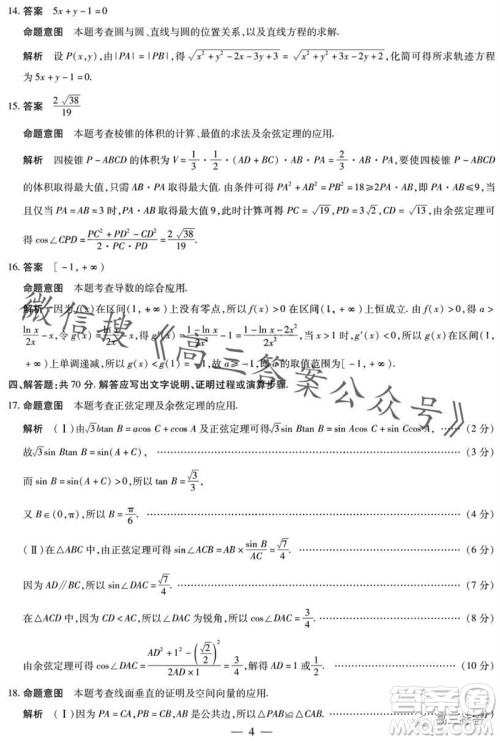 14. 答案 5x+y-1=0
命题意图 本题考查圆与圆、直线与圆的位置关系,以及直线方程的求法.
解析 设 P(x,y),由|PA|=|PB|,得√(x²+y²-2x-3y+3)=√(x²+y²+3x-2y+2),化简可得所求轨迹方程
为 5x+y-1=0.
15. 答案 2√38/19
命题意图 本题考查棱锥的体积的计算、最值的求法及余弦定理的应用.
解析 四棱锥 P-ABCD 的体积为 V=1/3·1/2·(AD+BC)·AB·PA=2/3·AB·PA,要使四棱锥 P-ABCD 的体
积取得最大值,只需 AB·PA 取得最大值.由条件可得 PA²+AB²=PB²=18≥2PA·AB,即 PA·AB≤9,当
且仅当 PA=AB=3 时,PA·AB 取得最大值 9,此时可得 PC=√19,PD=3√2,CD=√13,由余弦定理可
得 cos∠CPD=(PC²+PD²-CD²)/(2·PC·PD)=2√38/19.
16. 答案 [-1,+∞)
命题意图 本题考查导数的综合应用.
解析 因为 f(x)在区间(1,+∞)上没有零点,所以 f(x)>0 在区间(1,+∞)上恒成立.由 f(x)>0,得 a>
ln x/2x-x,令 g(x)=ln x/2x-x,则 g′(x)=(1-ln x)/2x²-1=(1-ln x-2x²)/2x².当 x>1 时,g′(x)<0,所以 g(x)在区间(1,+∞)
上单调递减,所以 g(x)<g(1)=-1,所以 a 的取值范围为[-1,+∞).
四、解答题:共 70 分.解答应写出文字说明、证明过程或演算步骤.
17. 命题意图 本题考查正弦定理及余弦定理的应用.
解析 (Ⅰ)由√3btan B=acos C+ccos A 及正弦定理可得√3sin Btan B=sin Acos C+sin Ccos A, (2 分)
故√3sin Btan B=sin(A+C), (3 分)
而 sin B=sin(A+C)>0,所以 tan B=√3/3,
又 B∈(0,π),所以 B=π/6. (4 分)
(Ⅱ)在△ABC 中,由正弦定理可得 sin∠ACB=AB×sin B/AC=√7/4. (6 分)
因为 AD∥BC,所以 sin∠DAC=√7/4. (7 分)
在△ACD 中,因为 CD<AC,所以∠DAC 为锐角,所以 cos∠DAC=3/4. (8 分)
由余弦定理可得 cos∠DAC=(AD²+1²-(√2/2)²)/(2AD×1)=3/4,解得 AD=1 或1/2. (10 分)
18. 命题意图 本题考查线面垂直的证明及空间向量的应用.
解析 (Ⅰ)因为 PA=PB,AC=BC,PC 是公共边,所以△PAC≌△PBC,
— 4 —
微信搜《高三答案公众号》